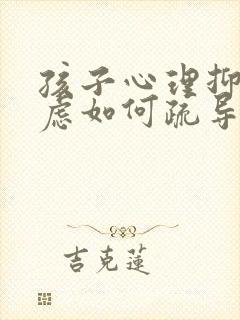 孩子心理抑
虑如何疏导
吉克蓮